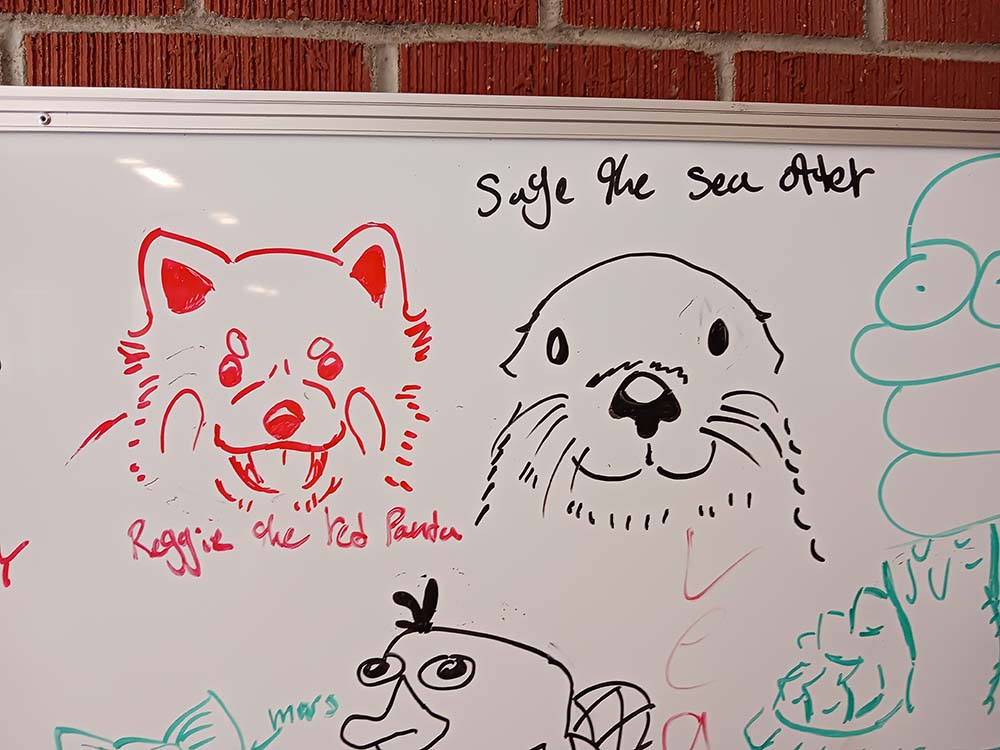 Sage the sea otter
Reggie the red Panda
L
e
a
mars